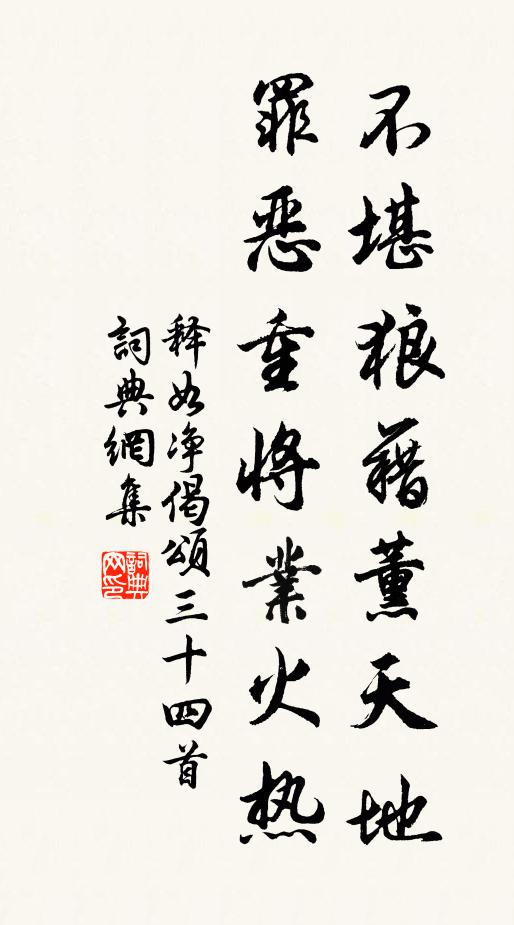 不堪狼藉薰天地
罪恶重将業火热
释如净偈頌三十四首
詞典網集
詞典网印